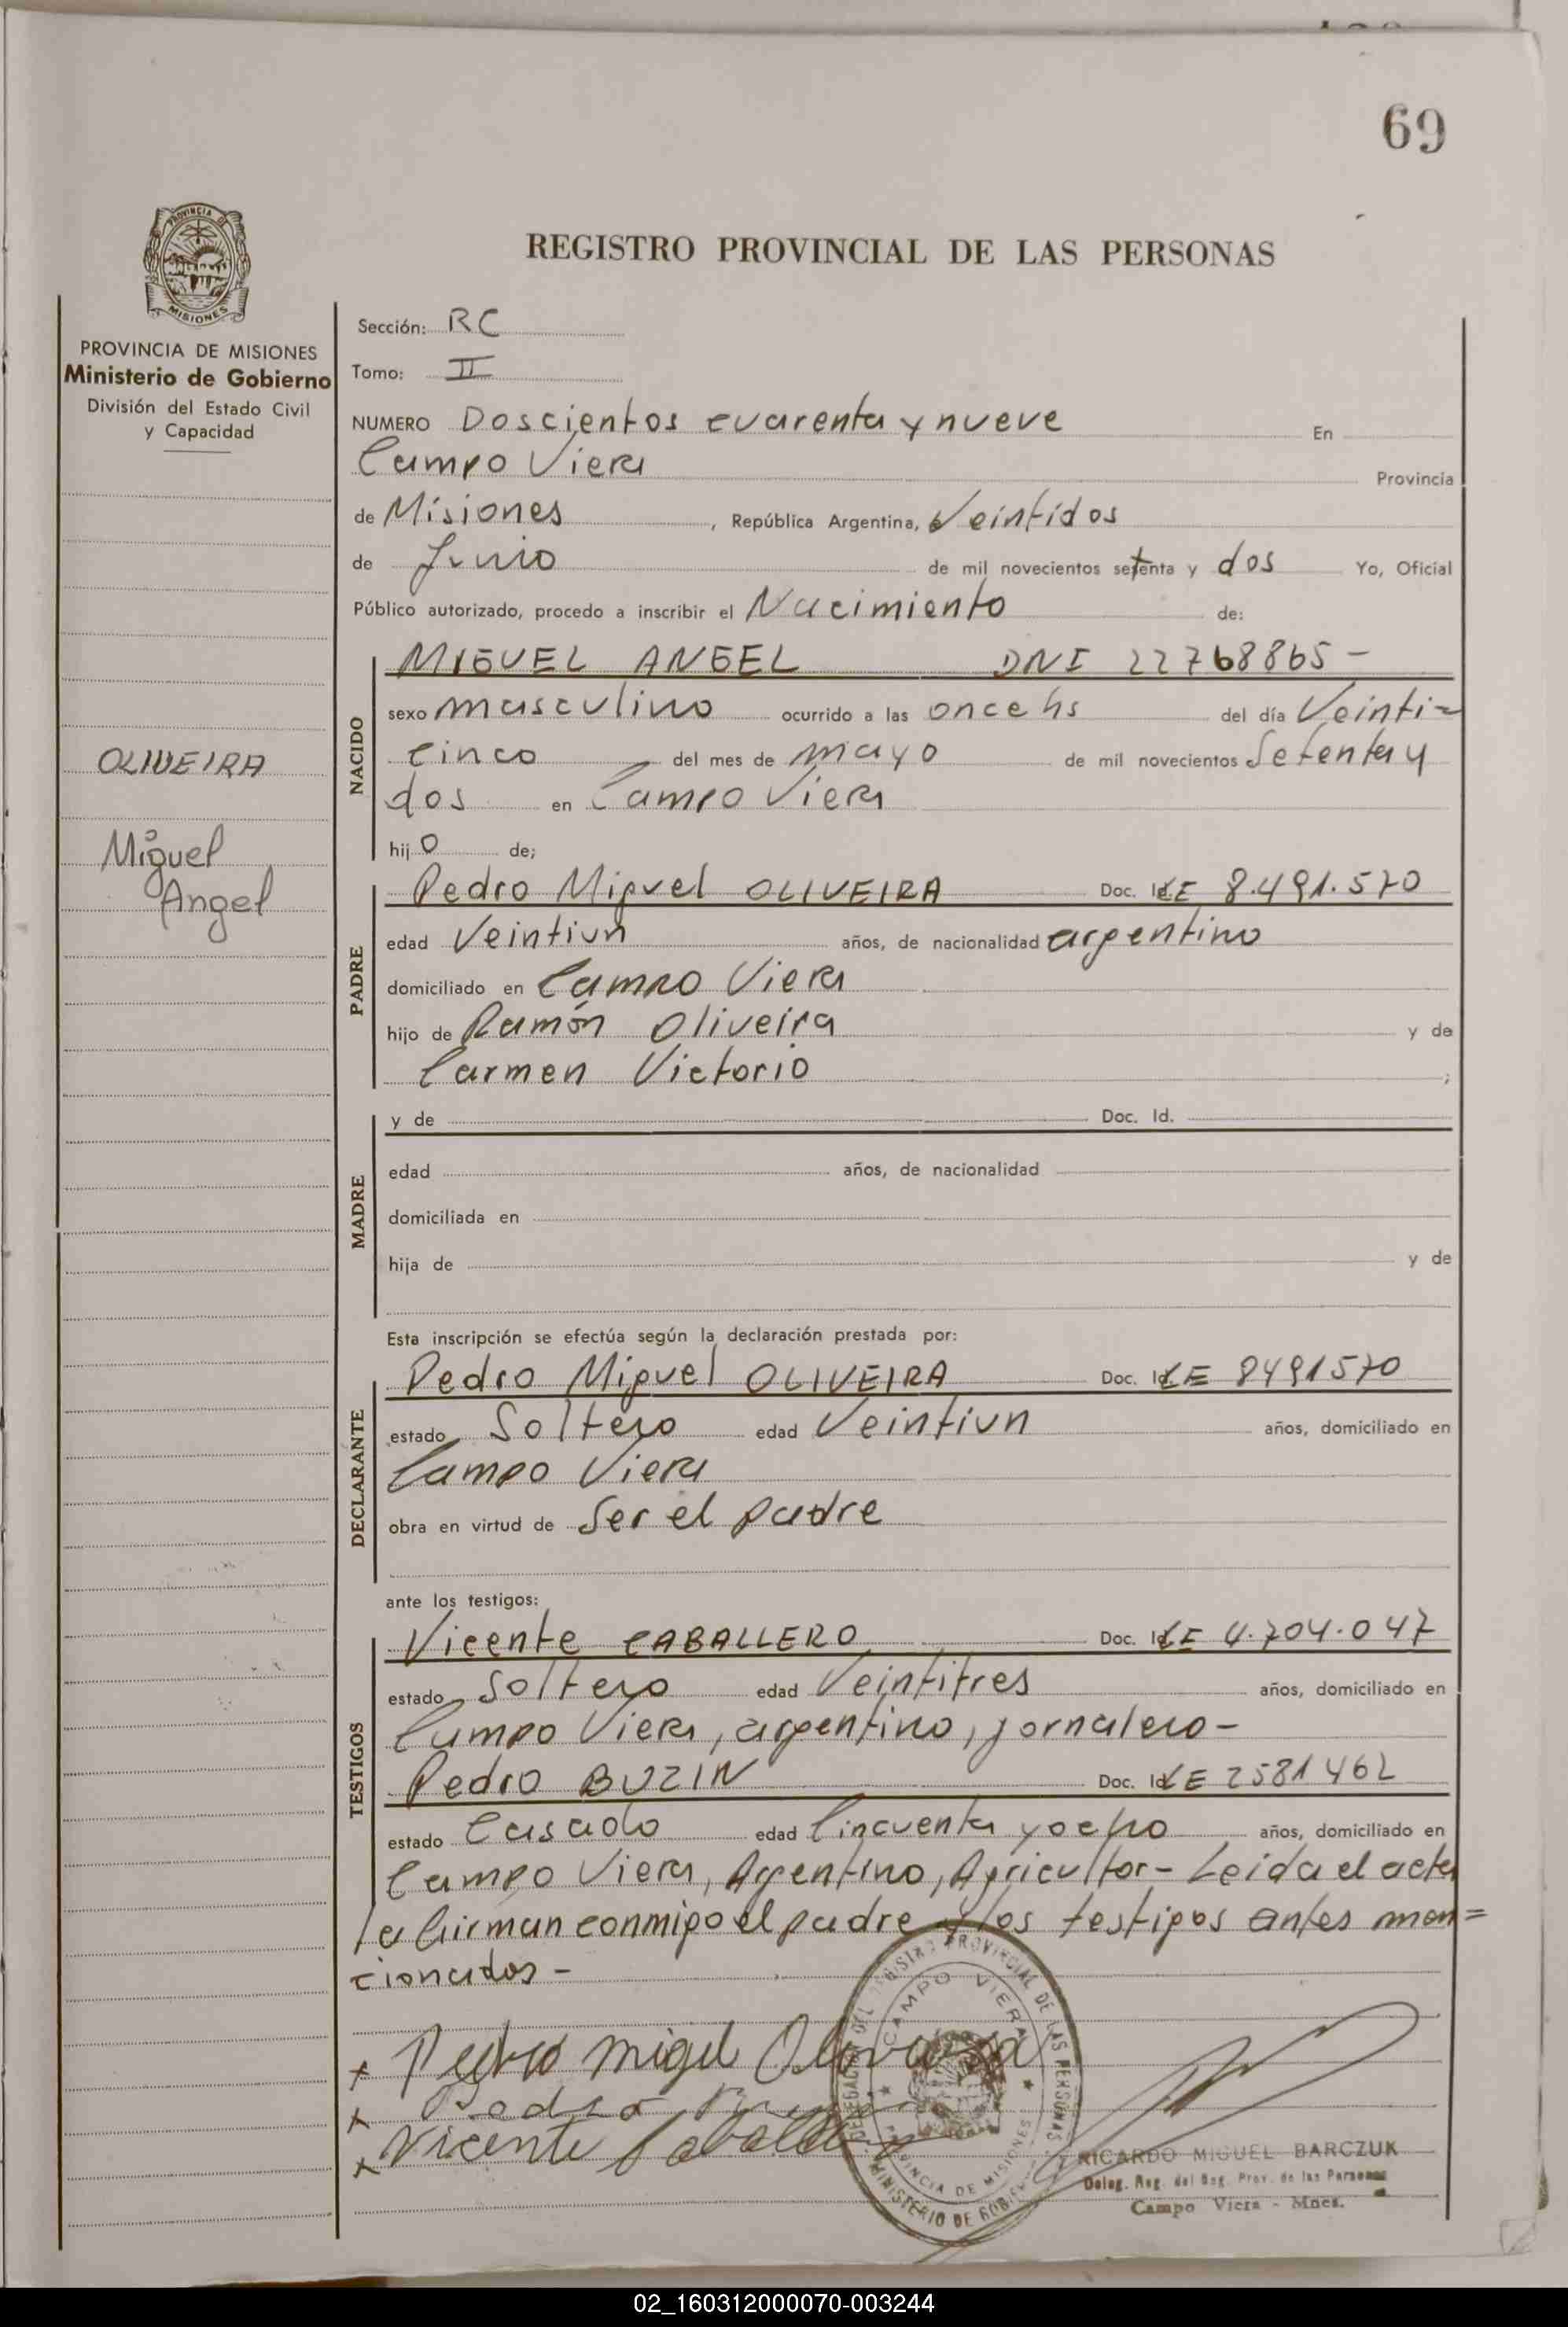 69
REGISTRO PROVINCIAL DE LAS PERSONAS
PROVINCIA DE
MISIONES
PROVINCIA DE MISIONES
Ministerio de Gobierno
División del Estado Civil
y Capacidad
OLIVEIRA
Miguel
Angel
Sección: RC
Tomo: II
NUMERO Doscientos cuarenta y nueve En
Campo Viera Provincia
de Misiones, República Argentina, Veintidos
de Junio de mil novecientos setenta y dos Yo, Oficial
Público autorizado, procedo a inscribir el Nacimiento de:
NACIDO
MIGUEL ANGEL DNI 22768865-
sexo masculino ocurrido a las once hs del día Veinti=
cinco del mes de mayo de mil novecientos Setenta y
dos en Campo Viera
hijo de;
PADRE
Pedro Miguel OLIVEIRA Doc. Id. LE 8.491.570
edad Veintiun años, de nacionalidad argentino
domiciliado en Campo Viera
hijo de Ramón Oliveira y de
Carmen Victorio ;
MADRE
y de Doc. Id.
edad años, de nacionalidad
domiciliada en
hija de y de
Esta inscripción se efectúa según la declaración prestada por:
DECLARANTE
Pedro Miguel OLIVEIRA Doc. Id. LE 8491570
estado Soltero edad Veintiun años, domiciliado en
Campo Viera
obra en virtud de Ser el padre
ante los testigos:
TESTIGOS
Vicente CABALLERO Doc. Id. LE 4.704.047
estado Soltero edad Veintitres años, domiciliado en
Campo Viera, argentino, jornalero-
Pedro BUZIN Doc. Id. LE 2581462
estado Casado edad Cincuenta y ocho años, domiciliado en
Campo Viera, Argentino, Agricultor- Leida el acta
la firman conmigo el padre y los testigos antes men=
cionados-
x Pedro Migel
x Pedro
x Vicente
DELEGACION DEL REGISTRO PROVINCIAL DE LAS PERSONAS
CAMPO VIERA
PROVINCIA DE MISIONES
MINISTERIO DE GOBIERNO
RICARDO MIGUEL BARCZUK
Deleg. Reg. del Reg. Prov. de las Personas
Campo Viera - Mnes.
02_160312000070-003244